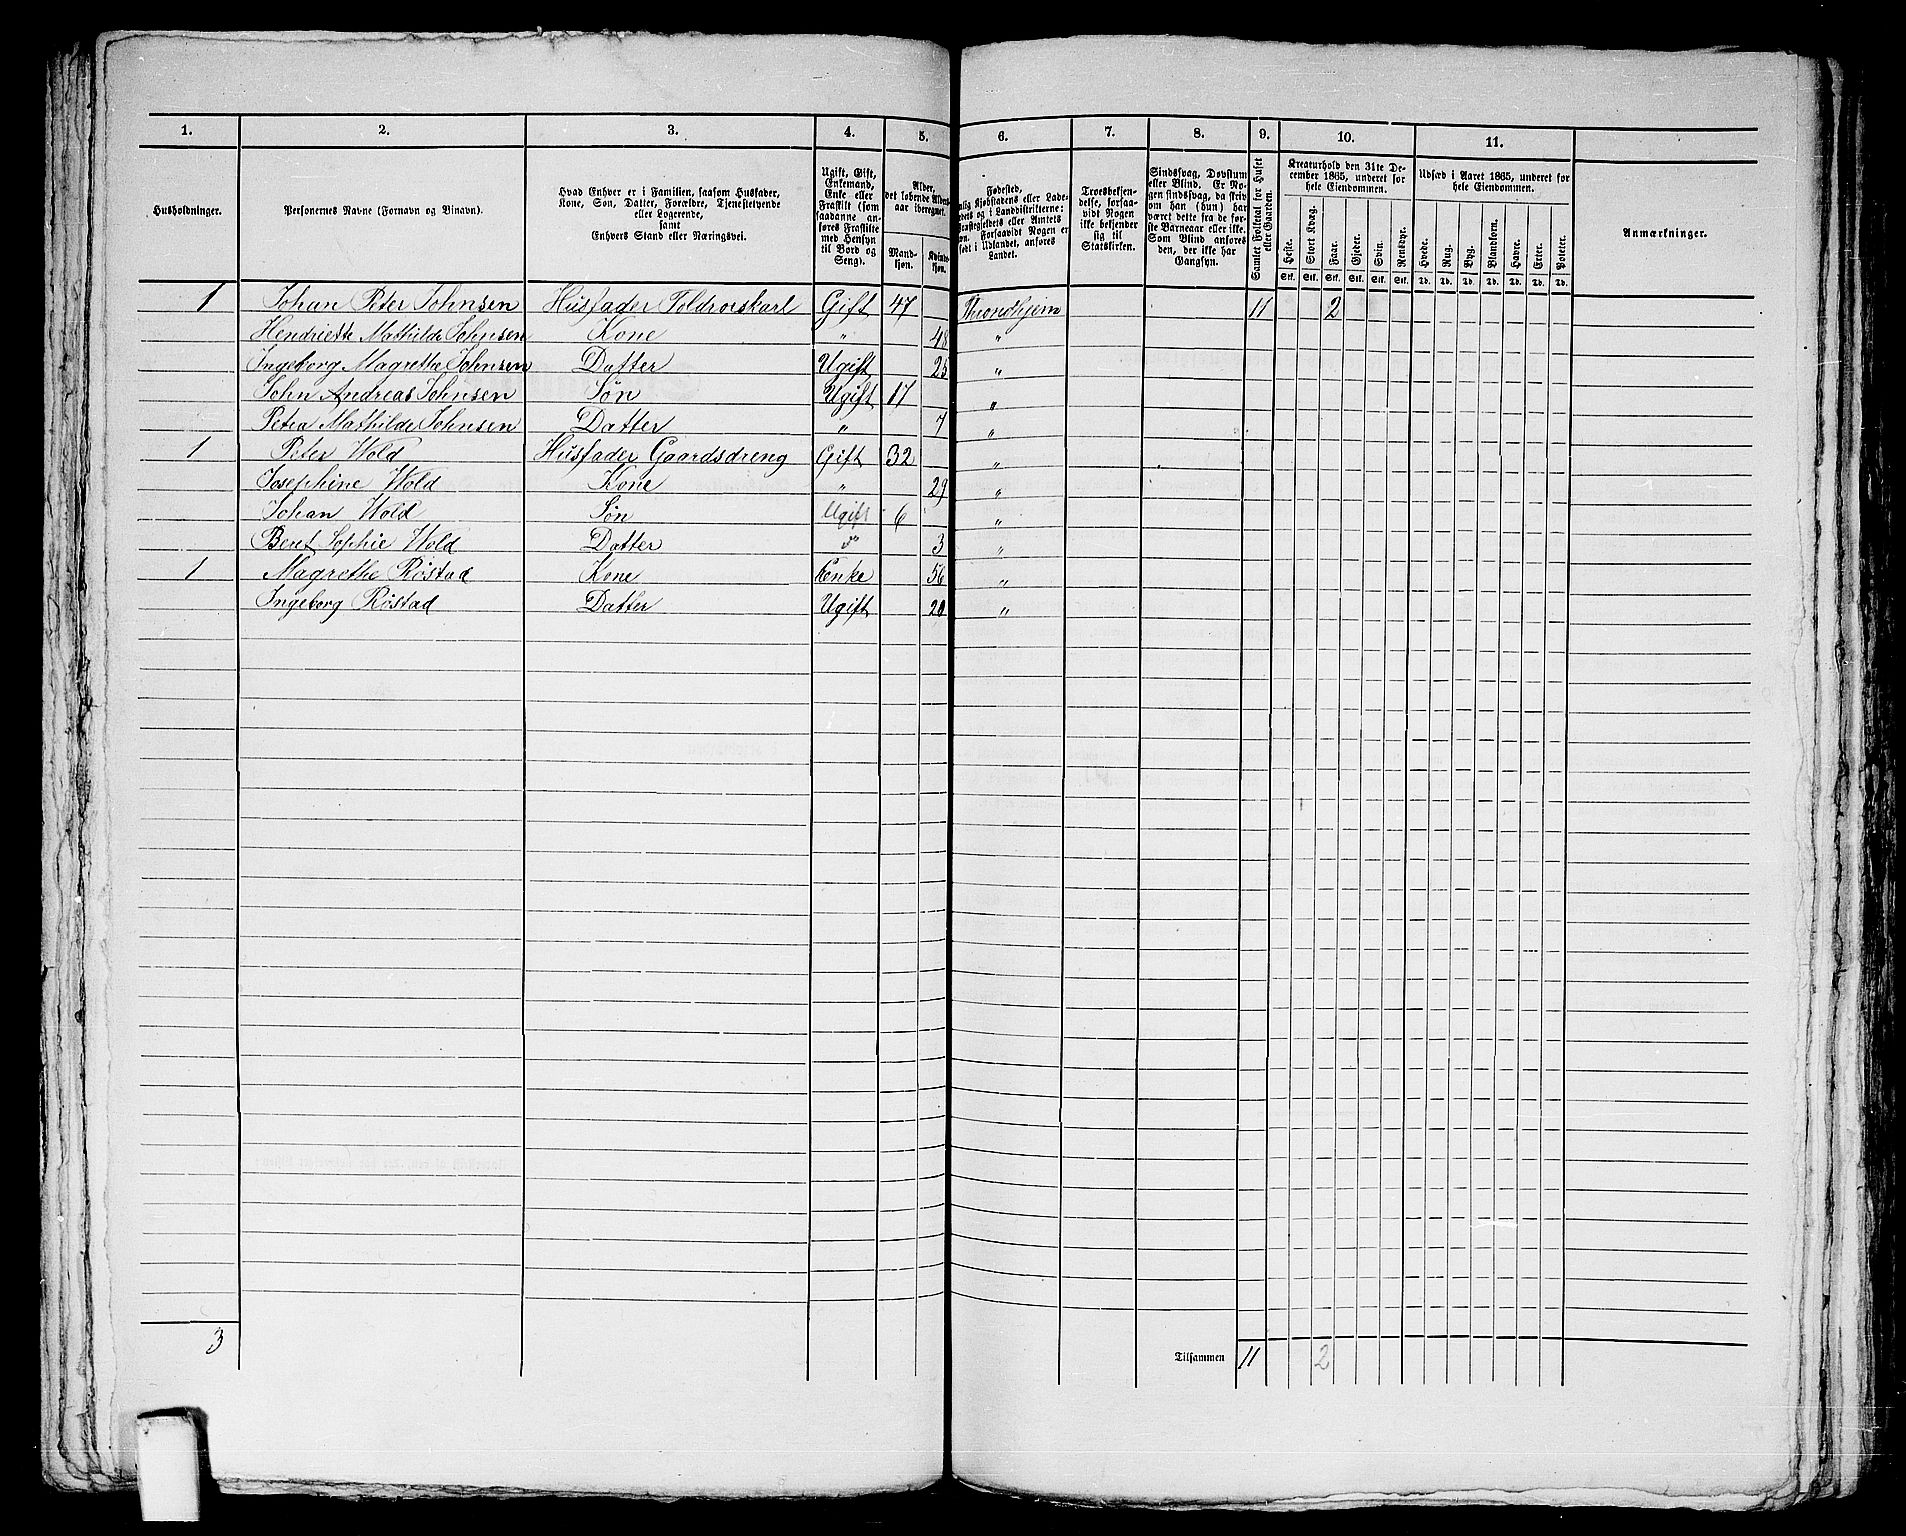 1. 2. 3. 4. 5. 6. 7. 8. 9. 10. 11.
Husholdninger.
Personernes Navne (Fornavn og Tilnavn).
Hvad Enhver er i Familien, saasom Husfader,
Kone, Søn, Datter, Forældre, Tjenestetyende
eller Logerende,
samt
Enhvers Stand eller Næringsvei.
Ugift, Gift,
Enkemand,
Enke eller
Fraskilt (som
saadanne an-
føres Fraskilte
med Hensyn
til Bord og
Seng).
Alder,
det løbende Alders-
aar iberegnet.
Mand-
kjøn.
Kvinde-
kjøn.
Fødested,
Troesbekjen-
delse, forsaa-
vidt Nogen
ikke bekjender
sig til
Statskirken.
Sindssvag, Døvstum
eller Blind. Er No-
gen sindssvag, da skriv
om han (hun) har
været dette fra de før-
ste Barneaar eller ikke.
Som Blind anføres
den, der ikke har
Gangsyn.
Samlet Folketal for Huset
eller Gaarden.
Kreaturhold den 31te De-
cember 1865, underet for
hele Eiendommen.
Heste. Stort Kvæg. Faar. Gjeder. Svin. Rensdyr.
Stk. Stk. Stk. Stk. Stk. Stk.
Udsæd i Aaret 1865, underet for
hele Eiendommen.
Hvede. Rug. Byg. Blandkorn. Havre. Erter. Poteter.
Td. Td. Td. Td. Td. Td. Td.
Anmærkninger.
1 Johan Peter Johnsen Husfader Toldrorskarl Gift 47 Throndhjem 11 2
Hendriette Mathilde Johnsen Kone " 48 "
Ingeborg Magrethe Johnsen Datter Ugift 25 "
John Andreas Johnsen Søn Ugift 17 "
Petra Mathilde Johnsen Datter " 7 "
1 Peter Wold Husfader Gaardsdreng Gift 32 "
Josephine Wold Kone " 29 "
Johan Wold Søn Ugift 6 "
Beret Sophie Wold Datter " 3 "
1 Magrethe Röstad Kone Enke 56 "
Ingeborg Röstad Datter Ugift 20 "
3 Tilsammen 11 2